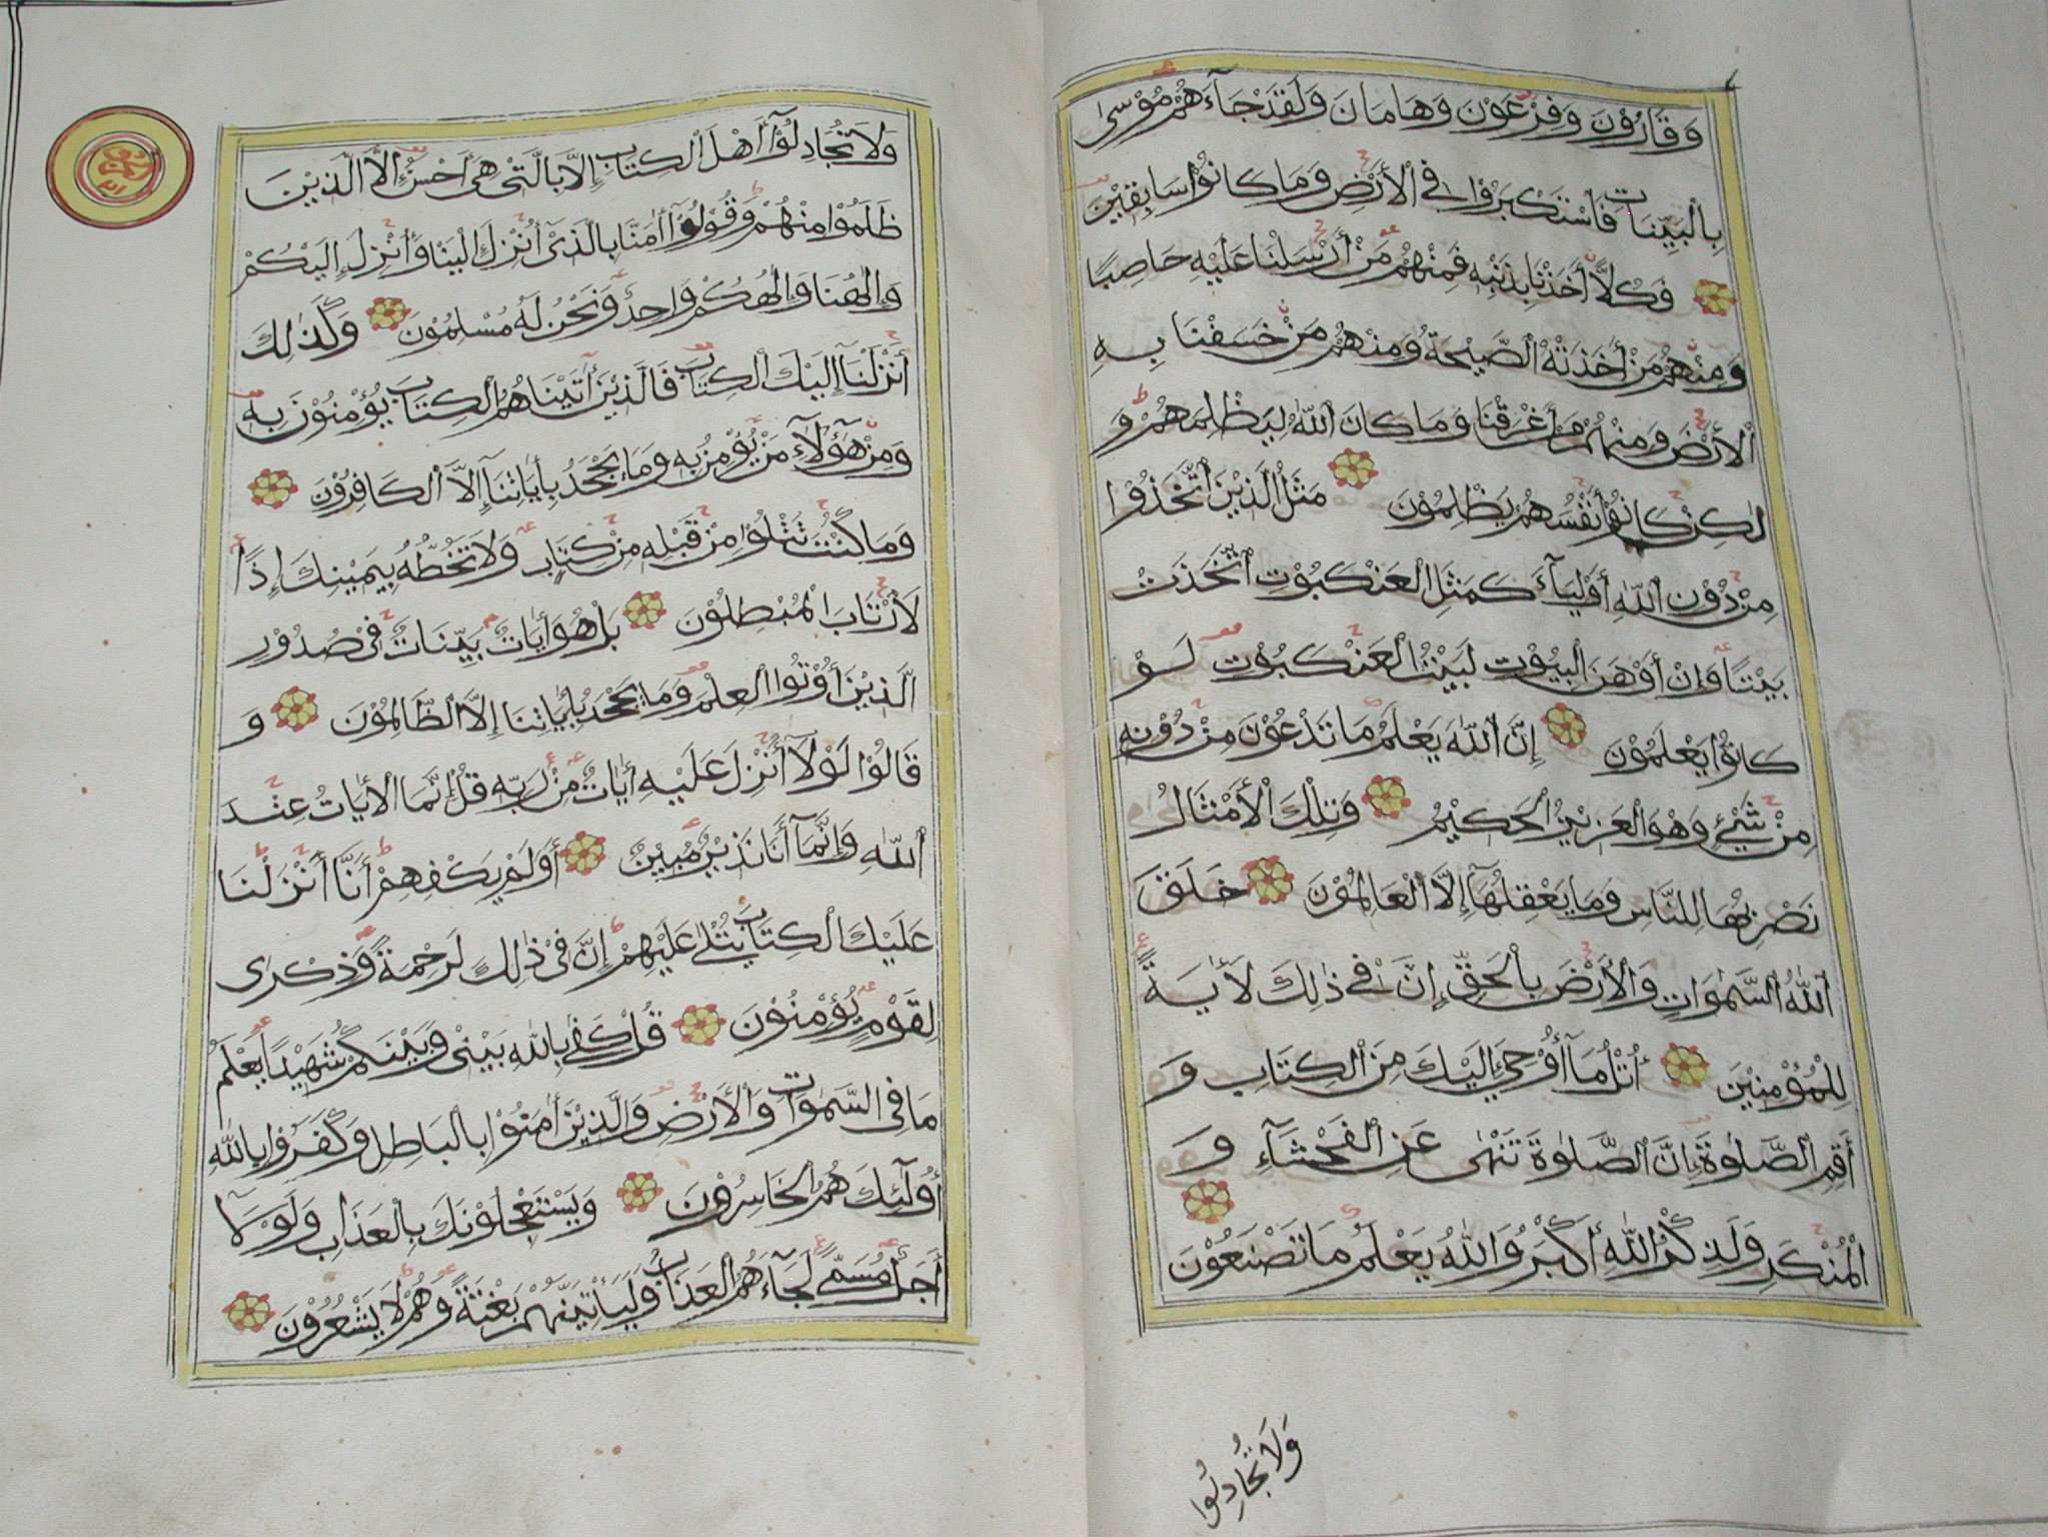 وَقَارُوْنَ وَفِرْعَوْنَ وَهَامَانَ وَلَقَدْ جَآءَهُمْ مُوْسٰى
بِالْبَيِّنَاتِ فَاسْتَكْبَرُوْا فِي الْأَرْضِ وَمَا كَانُوْا سَابِقِيْنَ
فَكُلًّا أَخَذْنَا بِذَنْبِهِ فَمِنْهُمْ مَنْ أَرْسَلْنَا عَلَيْهِ حَاصِبًا
وَمِنْهُمْ مَنْ أَخَذَتْهُ الصَّيْحَةُ وَمِنْهُمْ مَنْ خَسَفْنَا بِهِ
الْأَرْضَ وَمِنْهُمْ مَنْ أَغْرَقْنَا وَمَا كَانَ اللّٰهُ لِيَظْلِمَهُمْ وَ
لٰكِنْ كَانُوْا أَنْفُسَهُمْ يَظْلِمُوْنَ مَثَلُ الَّذِيْنَ اتَّخَذُوْا
مِنْ دُوْنِ اللّٰهِ أَوْلِيَآءَ كَمَثَلِ الْعَنْكَبُوْتِ اتَّخَذَتْ
بَيْتًا وَإِنَّ أَوْهَنَ الْبُيُوْتِ لَبَيْتُ الْعَنْكَبُوْتِ لَوْ
كَانُوْا يَعْلَمُوْنَ إِنَّ اللّٰهَ يَعْلَمُ مَا تَدْعُوْنَ مِنْ دُوْنِهِ
مِنْ شَيْءٍ وَهُوَ الْعَزِيْزُ الْحَكِيْمُ وَتِلْكَ الْأَمْثَالُ
نَضْرِبُهَا لِلنَّاسِ وَمَا يَعْقِلُهَآ إِلَّا الْعَالِمُوْنَ خَلَقَ
اللّٰهُ السَّمٰوَاتِ وَالْأَرْضَ بِالْحَقِّ إِنَّ فِيْ ذٰلِكَ لَأٰيَةً
لِلْمُؤْمِنِيْنَ أُتْلُ مَآ أُوْحِيَ إِلَيْكَ مِنَ الْكِتَابِ وَ
أَقِمِ الصَّلٰوةَ إِنَّ الصَّلٰوةَ تَنْهٰى عَنِ الْفَحْشَآءِ وَ
الْمُنْكَرِ وَلَذِكْرُ اللّٰهِ أَكْبَرُ وَاللّٰهُ يَعْلَمُ مَا تَصْنَعُوْنَ
وَلَا تُجَادِلُوا
وَلَا تُجَادِلُوْآ أَهْلَ الْكِتَابِ إِلَّا بِالَّتِيْ هِيَ أَحْسَنُ إِلَّا الَّذِيْنَ
ظَلَمُوْا مِنْهُمْ وَقُوْلُوْآ أٰمَنَّا بِالَّذِيْ أُنْزِلَ إِلَيْنَا وَأُنْزِلَ إِلَيْكُمْ
وَإِلٰهُنَا وَإِلٰهُكُمْ وَاحِدٌ وَنَحْنُ لَهُ مُسْلِمُوْنَ وَكَذٰلِكَ
أَنْزَلْنَآ إِلَيْكَ الْكِتَابَ فَالَّذِيْنَ أٰتَيْنَاهُمُ الْكِتَابَ يُؤْمِنُوْنَ بِهِ
وَمِنْ هٰٓؤُلَآءِ مَنْ يُؤْمِنُ بِهِ وَمَا يَجْحَدُ بِأٰيَاتِنَآ إِلَّا الْكَافِرُوْنَ
وَمَا كُنْتَ تَتْلُوْا مِنْ قَبْلِهِ مِنْ كِتَابٍ وَلَا تَخُطُّهُ بِيَمِيْنِكَ إِذًا
لَارْتَابَ الْمُبْطِلُوْنَ بَلْ هُوَ أٰيَاتٌ بَيِّنَاتٌ فِيْ صُدُوْرِ
الَّذِيْنَ أُوْتُوا الْعِلْمَ وَمَا يَجْحَدُ بِأٰيَاتِنَا إِلَّا الظَّالِمُوْنَ وَ
قَالُوْا لَوْلَآ أُنْزِلَ عَلَيْهِ أٰيَاتٌ مِنْ رَبِّهِ قُلْ إِنَّمَا الْأٰيَاتُ عِنْدَ
اللّٰهِ وَإِنَّمَآ أَنَا نَذِيْرٌ مُبِيْنٌ أَوَلَمْ يَكْفِهِمْ أَنَّآ أَنْزَلْنَا
عَلَيْكَ الْكِتَابَ يُتْلٰى عَلَيْهِمْ إِنَّ فِيْ ذٰلِكَ لَرَحْمَةً وَذِكْرٰى
لِقَوْمٍ يُؤْمِنُوْنَ قُلْ كَفٰى بِاللّٰهِ بَيْنِيْ وَبَيْنَكُمْ شَهِيْدًا يَعْلَمُ
مَا فِي السَّمٰوَاتِ وَالْأَرْضِ وَالَّذِيْنَ أٰمَنُوْا بِالْبَاطِلِ وَكَفَرُوْا بِاللّٰهِ
أُولٰٓئِكَ هُمُ الْخَاسِرُوْنَ وَيَسْتَعْجِلُوْنَكَ بِالْعَذَابِ وَلَوْلَآ
أَجَلٌ مُسَمًّى لَجَآءَهُمُ الْعَذَابُ وَلَيَأْتِيَنَّهُمْ بَغْتَةً وَهُمْ لَا يَشْعُرُوْنَ